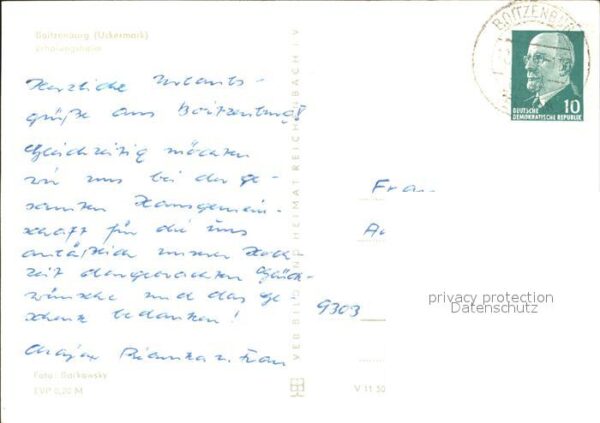 Boitzenburg (Uckermark)
Erholungsheim
Herzliche Urlaubs-
grüße aus Boitzenburg!
Gleichzeitig möchten
wir uns bei der ge-
samten Hausgemein-
schaft für die uns
anläßlich unserer Hoch
zeit dargebrachten Glück-
wünsche und das Ge-
schenk bedanken!
Bianka u.
Foto: Darkowsky
EVP 0,20 M
VEB BILD UND HEIMAT REICHENBACH I V
V 11 50
BOITZENBURG
10
DEUTSCHE
DEMOKRATISCHE REPUBLIK
Frau
9303
privacy protection
Datenschutz